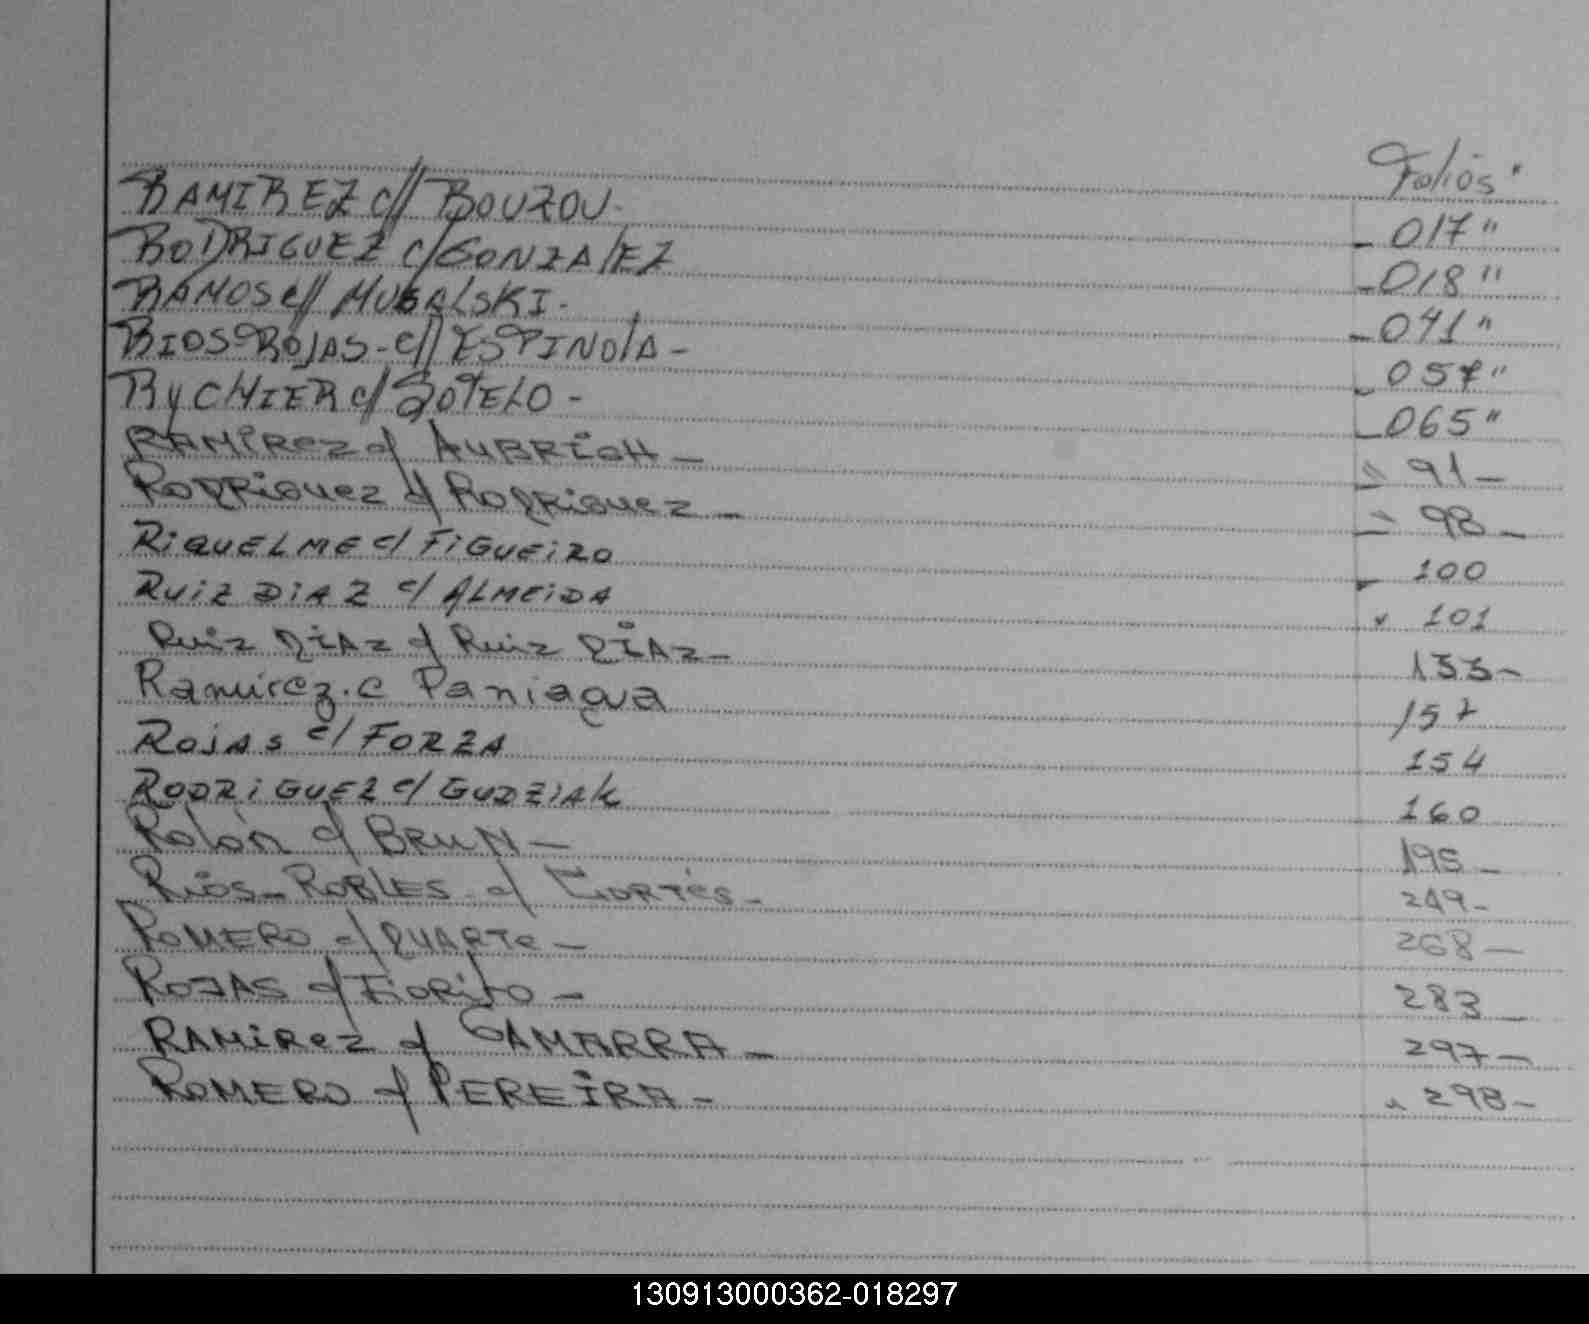 Folios"
RAMIREZ c// BOUZOU- 017"
RODRIGUEZ c/ GONZALEZ 018"
RAMOS c// MUSALSKI- 041"
RIOS ROJAS- c// ESPINOLA - 057"
RyCHIER c/ SOTELO - 065"
RAMIREZ c/ AUBRIGH - " 91-
RODRIGUEZ c/ RODRIGUEZ - " 98-
RIQUELME c/ FIGUEIRO 100
RUIZ DIAZ c/ ALMEIDA 101
Ruiz DIAZ c/ Ruiz DIAZ- 133-
Ramirez.c Paniagua 157
ROJAS c/ FORZA 154
RODRIGUEZ c/ GUDZIAK 160
Rolón c/ BRUN - 195-
Ríos-ROBLES- c/ CORTÉS- 249-
ROMERO c/ DUARTE - 268-
ROJAS c/ FIORITO - 283-
RAMIREZ c/ GAMARRA - 297-
ROMERO c/ PEREIRA - " 298-
130913000362-018297